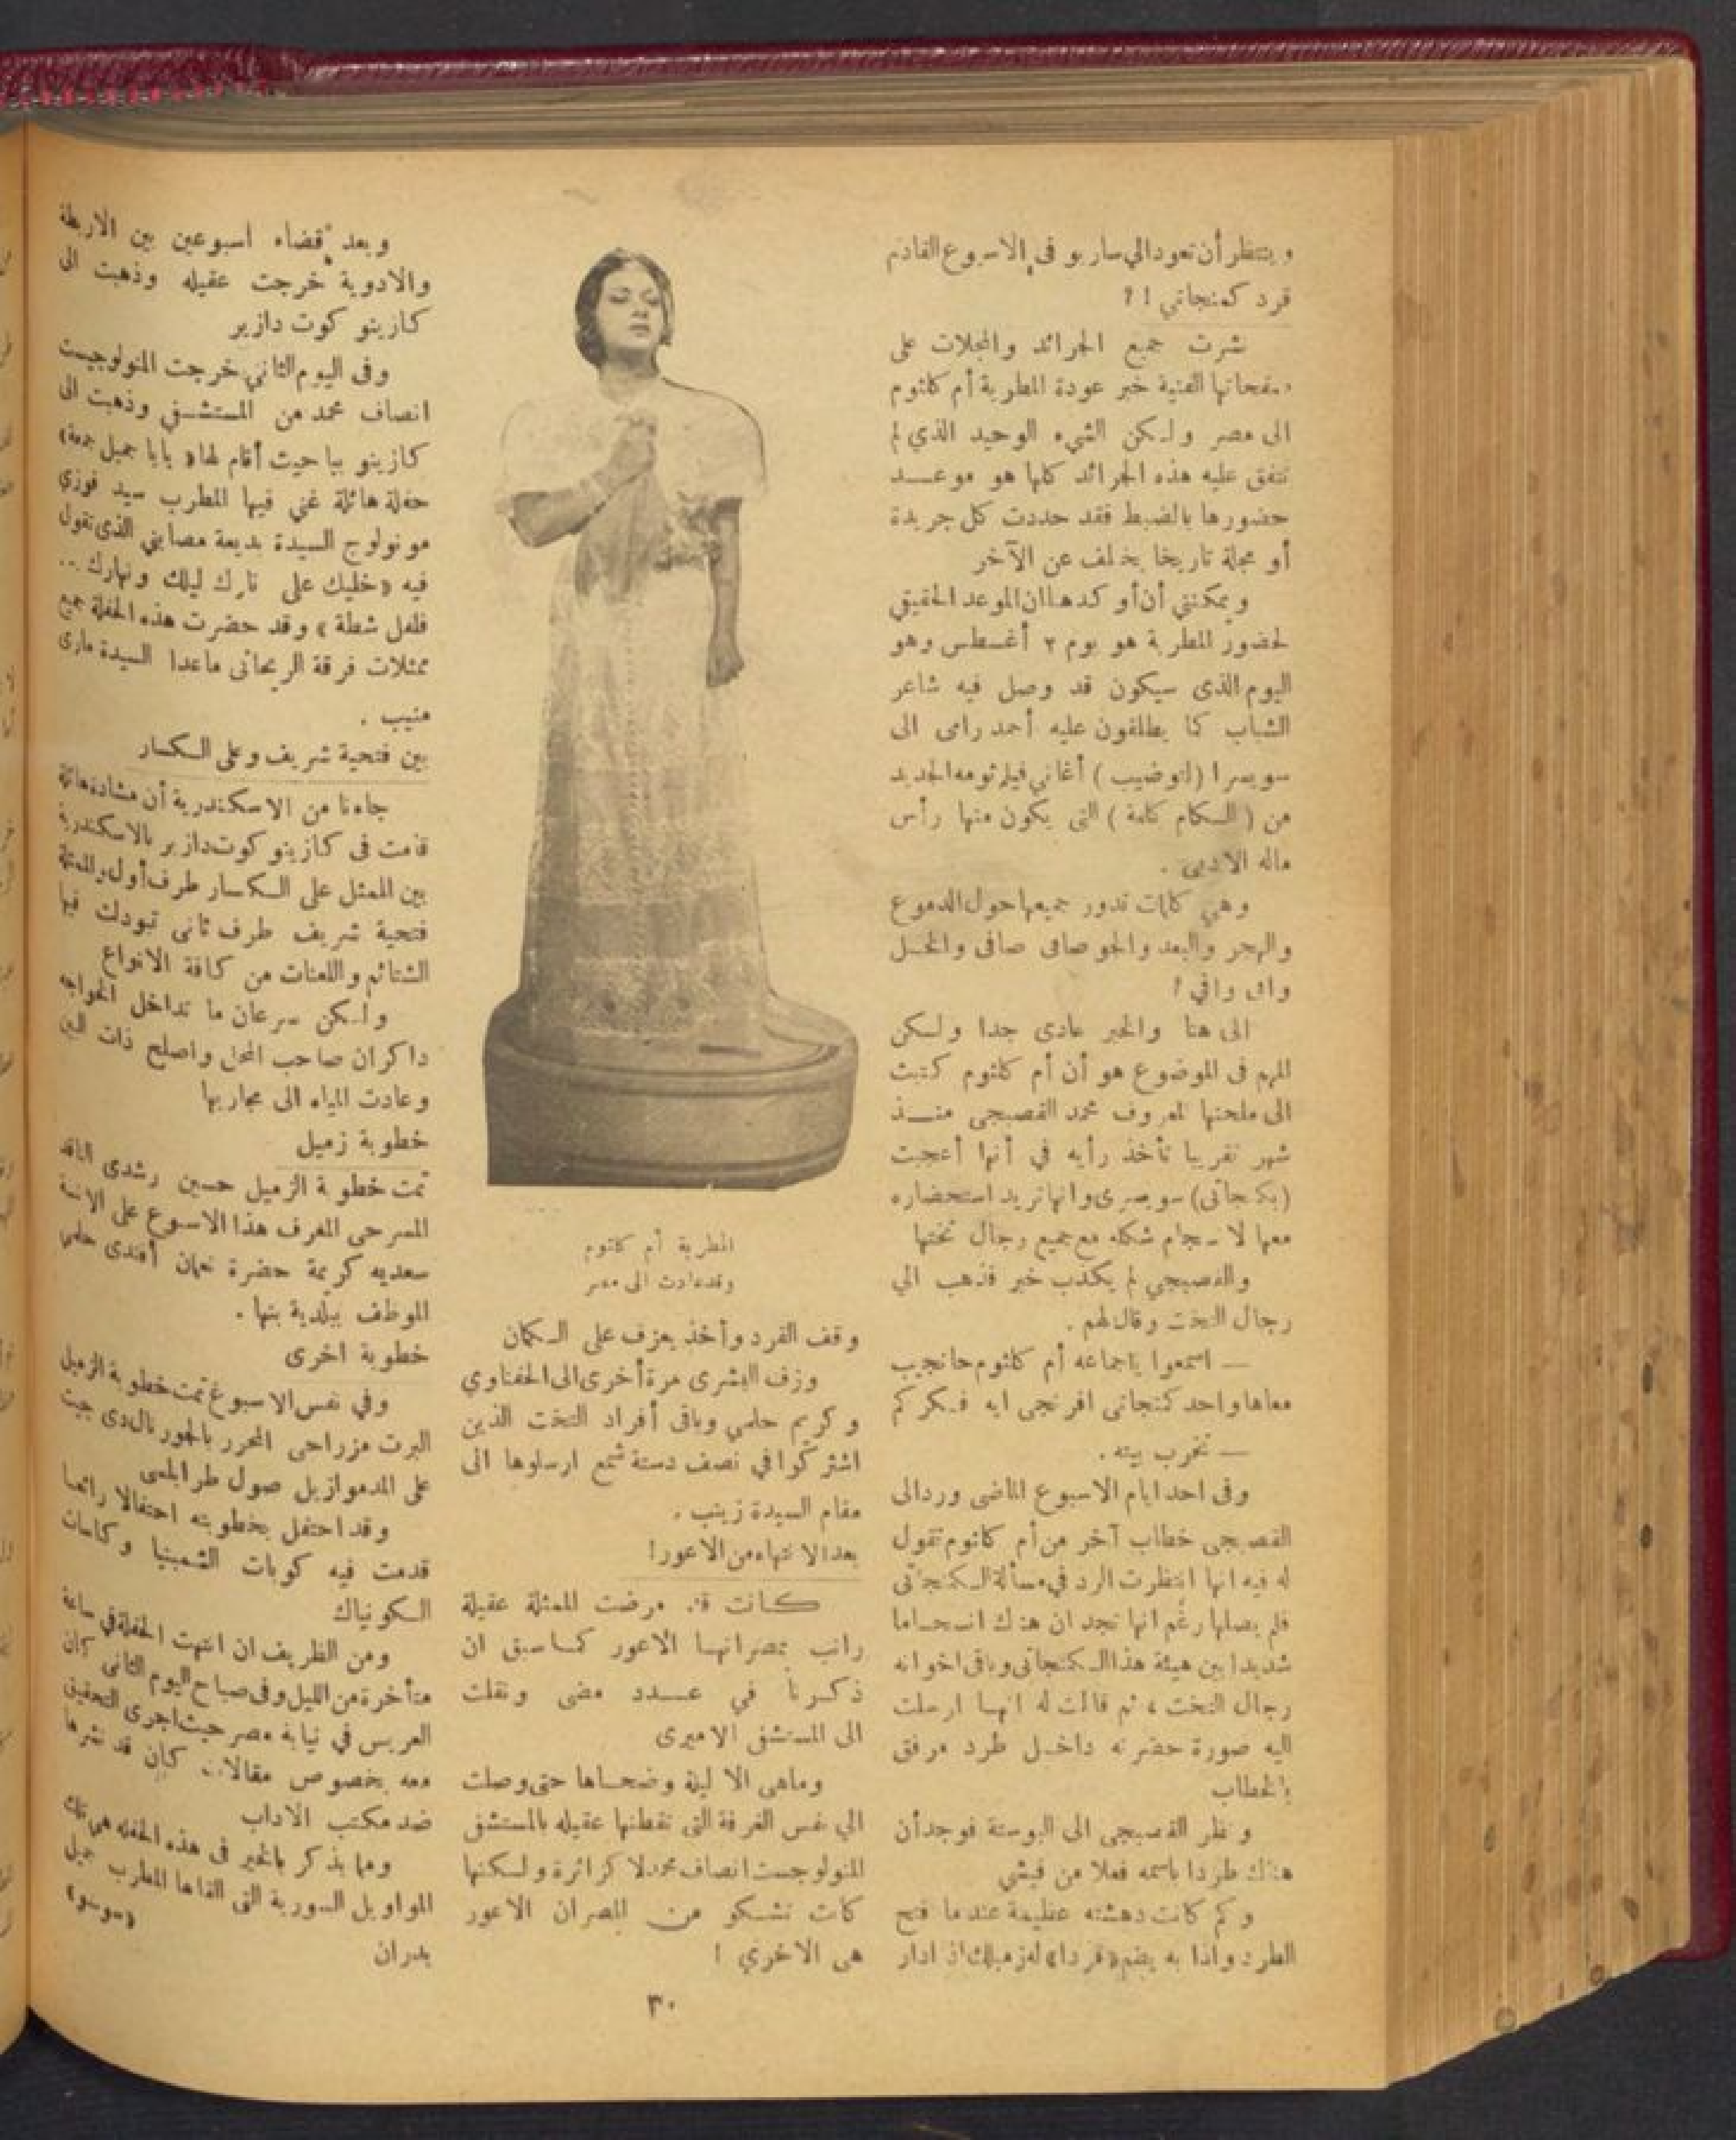 وينتظر أن تعود الي ساربو فى الاسبوع القادم
قرد كمنجاتي ! ?
نشرت جميع الجرائد والمجلات على
صفحاتها الفنية خبر عودة المطربة أم كلثوم
الى مصر ولكن الشيء الوحيد الذي لم
تتفق عليه هذه الجرائد كلها هو موعـــد
حضورها بالضبط فقد حددت كل جريدة
أو مجلة تاريخا يخلف عن الآخر
ويمكنني أن أوكد هـا ان الموعد الحقيقي
لحضور المطربة هو يوم ٢ أغسطس وهو
اليوم الذى سيكون قد وصل فيه شاعر
الشباب كما يطلقون عليه أحمد رامى الى
سويسرا (لتوضيب) أغاني فيلم ثومه الجديد
من (الكام كلمة) التى يكون منها رأس
ماله الادبى .
وهي كلمات تدور جميعها حول الدموع
والهجر والبعد والجو صافى صافى والخـل
وافى وافي !
الى هنا والخبر عادى جدا ولكن
المهم فى الموضوع هو أن أم كلثوم كتبت
الى ملحنها المعروف محمد القصبجى منــذ
شهر تقريبا تأخذ رأيه في أنها أعجبت
(بكمنجاتى) سويسرى وانها تريد استحضاره
معها لانسجام شكله مع جميع رجال تختها
والقصبجي لم يكذب خبر فذهب الي
رجال التخت وقال لهم .
— اسمعوا ياجماعه أم كلثوم حاتجيب
معاها واحد كمنجاتى افرنجى ايه فـكركم
— تخرب بيته .
وفى احد ايام الاسبوع الماضى ورد الى
القصبجى خطاب آخر من أم كلثوم تقول
له فيه انها انتظرت الرد في مسألة الـكمنجاتى
فلم يصلها رغم انها تجد ان هناك انسجـاما
شديدا بين هيئة هذا الـكمنجاتى وباقى اخوانه
رجال التخت ، ثم قالت له انهـا ارسلت
اليه صورة حضرته داخـل طرد مرفق
بالخطاب
ونظر القصبجى الى البوستة فوجد أن
هناك طردا باسمه فعلا من فيشي
وكم كانت دهشته عظيمة عندما فتح
الطرد واذا به يضم «قردا» له زمبلك اذ ادار
المطربة أم كلثوم
وقد عادت الى مصر
وقف القرد وأخذ يعزف على الـكمان
وزف البشرى مرة أخرى الى الحفناوي
وكريم حلمي وباقى أفراد التخت الذين
اشتركوا في نصف دستة شمع ارسلوها الى
مقام السيدة زينب .
بعد الانتهاء من الاعور !
كـانت قد مرضت الممثلة عقيلة
راتب بمصرانهـا الاعور كمـا سبق ان
ذكـرنا في عـــدد مضى ونقلت
الى المستشفى الاميرى
وماهى الا ليلة وضحـاها حتى وصلت
الي نفس الغرفة التى تقطنها عقيله بالمستشفى
المنولوجست انصاف محمد لا كزائرة ولـكنها
كانت تشـكو من المصران الاعور
هى الاخري !
وبعد قضاء اسبوعين بين الاربطة
والادوية خرجت عقيله وذهبت الى
كازينو كوت دازير
وفى اليوم الثاني خرجت المنولوجيست
انصاف محمد من المستشفي وذهبت الى
كازينو ببا حيث أقام لها « بابا جميل جمعة»
حفلة هائلة غني فيها المطرب سيد فوزي
مونولوج السيدة بديعة مصابني الذى تقول
فيه « خليك على نارك ليلك ونهارك ..
فلفل شطة » وقد حضرت هذه الحفلة جميع
ممثلات فرقة الريحانى ماعدا السيدة مارى
منيب .
بين فتحية شريف وعلى الـكسار
جاءنا من الاسكندرية أن مشادة هائلة
قامت فى كازينو كوت دازير بالاسكندرية
بين الممثل على الـكسار طرف أول والممثلة
فتحية شريف طرف ثانى تبودلت فيها
الشتائم واللعنات من كافة الانواع
ولـكن سرعان ما تداخل الخواجه
داكران صاحب المحل واصلح ذات البين
وعادت المياه الى مجاريها
خطوبة زميل
تمت خطوبة الزميل حسين رشدى الناقد
المسرحى المعرف هذا الاسبوع على الانسة
سعديه كريمة حضرة نعمان أفندى حلمى
الموظف ببلدية بنها .
خطوبة اخرى
وفي نفس الاسبوع تمت خطوبة الزميل
البرت مزراحى المحرر بالجورنال دى جيت
على المدموازيل صول طرابلسى
وقد احتفل بخطوبته احتفالا رائعـا
قدمت فيه كوبات الشمبنيا وكاسات
الـكونياك
ومن الظريف ان انتهت الحفلة في ساعة
متأخرة من الليل وفى صباح اليوم الثانى كان
العريس في نيابة مصر حيث اجرى التحقيق
معه بخصوص مقالات كان قد نشرها
ضد مكتب الاداب
ومما يذكر بالخير فى هذه الحفله هي تلك
المواويل السورية التى القاها المطرب جميل
بدران
«سوسو»
٣٠